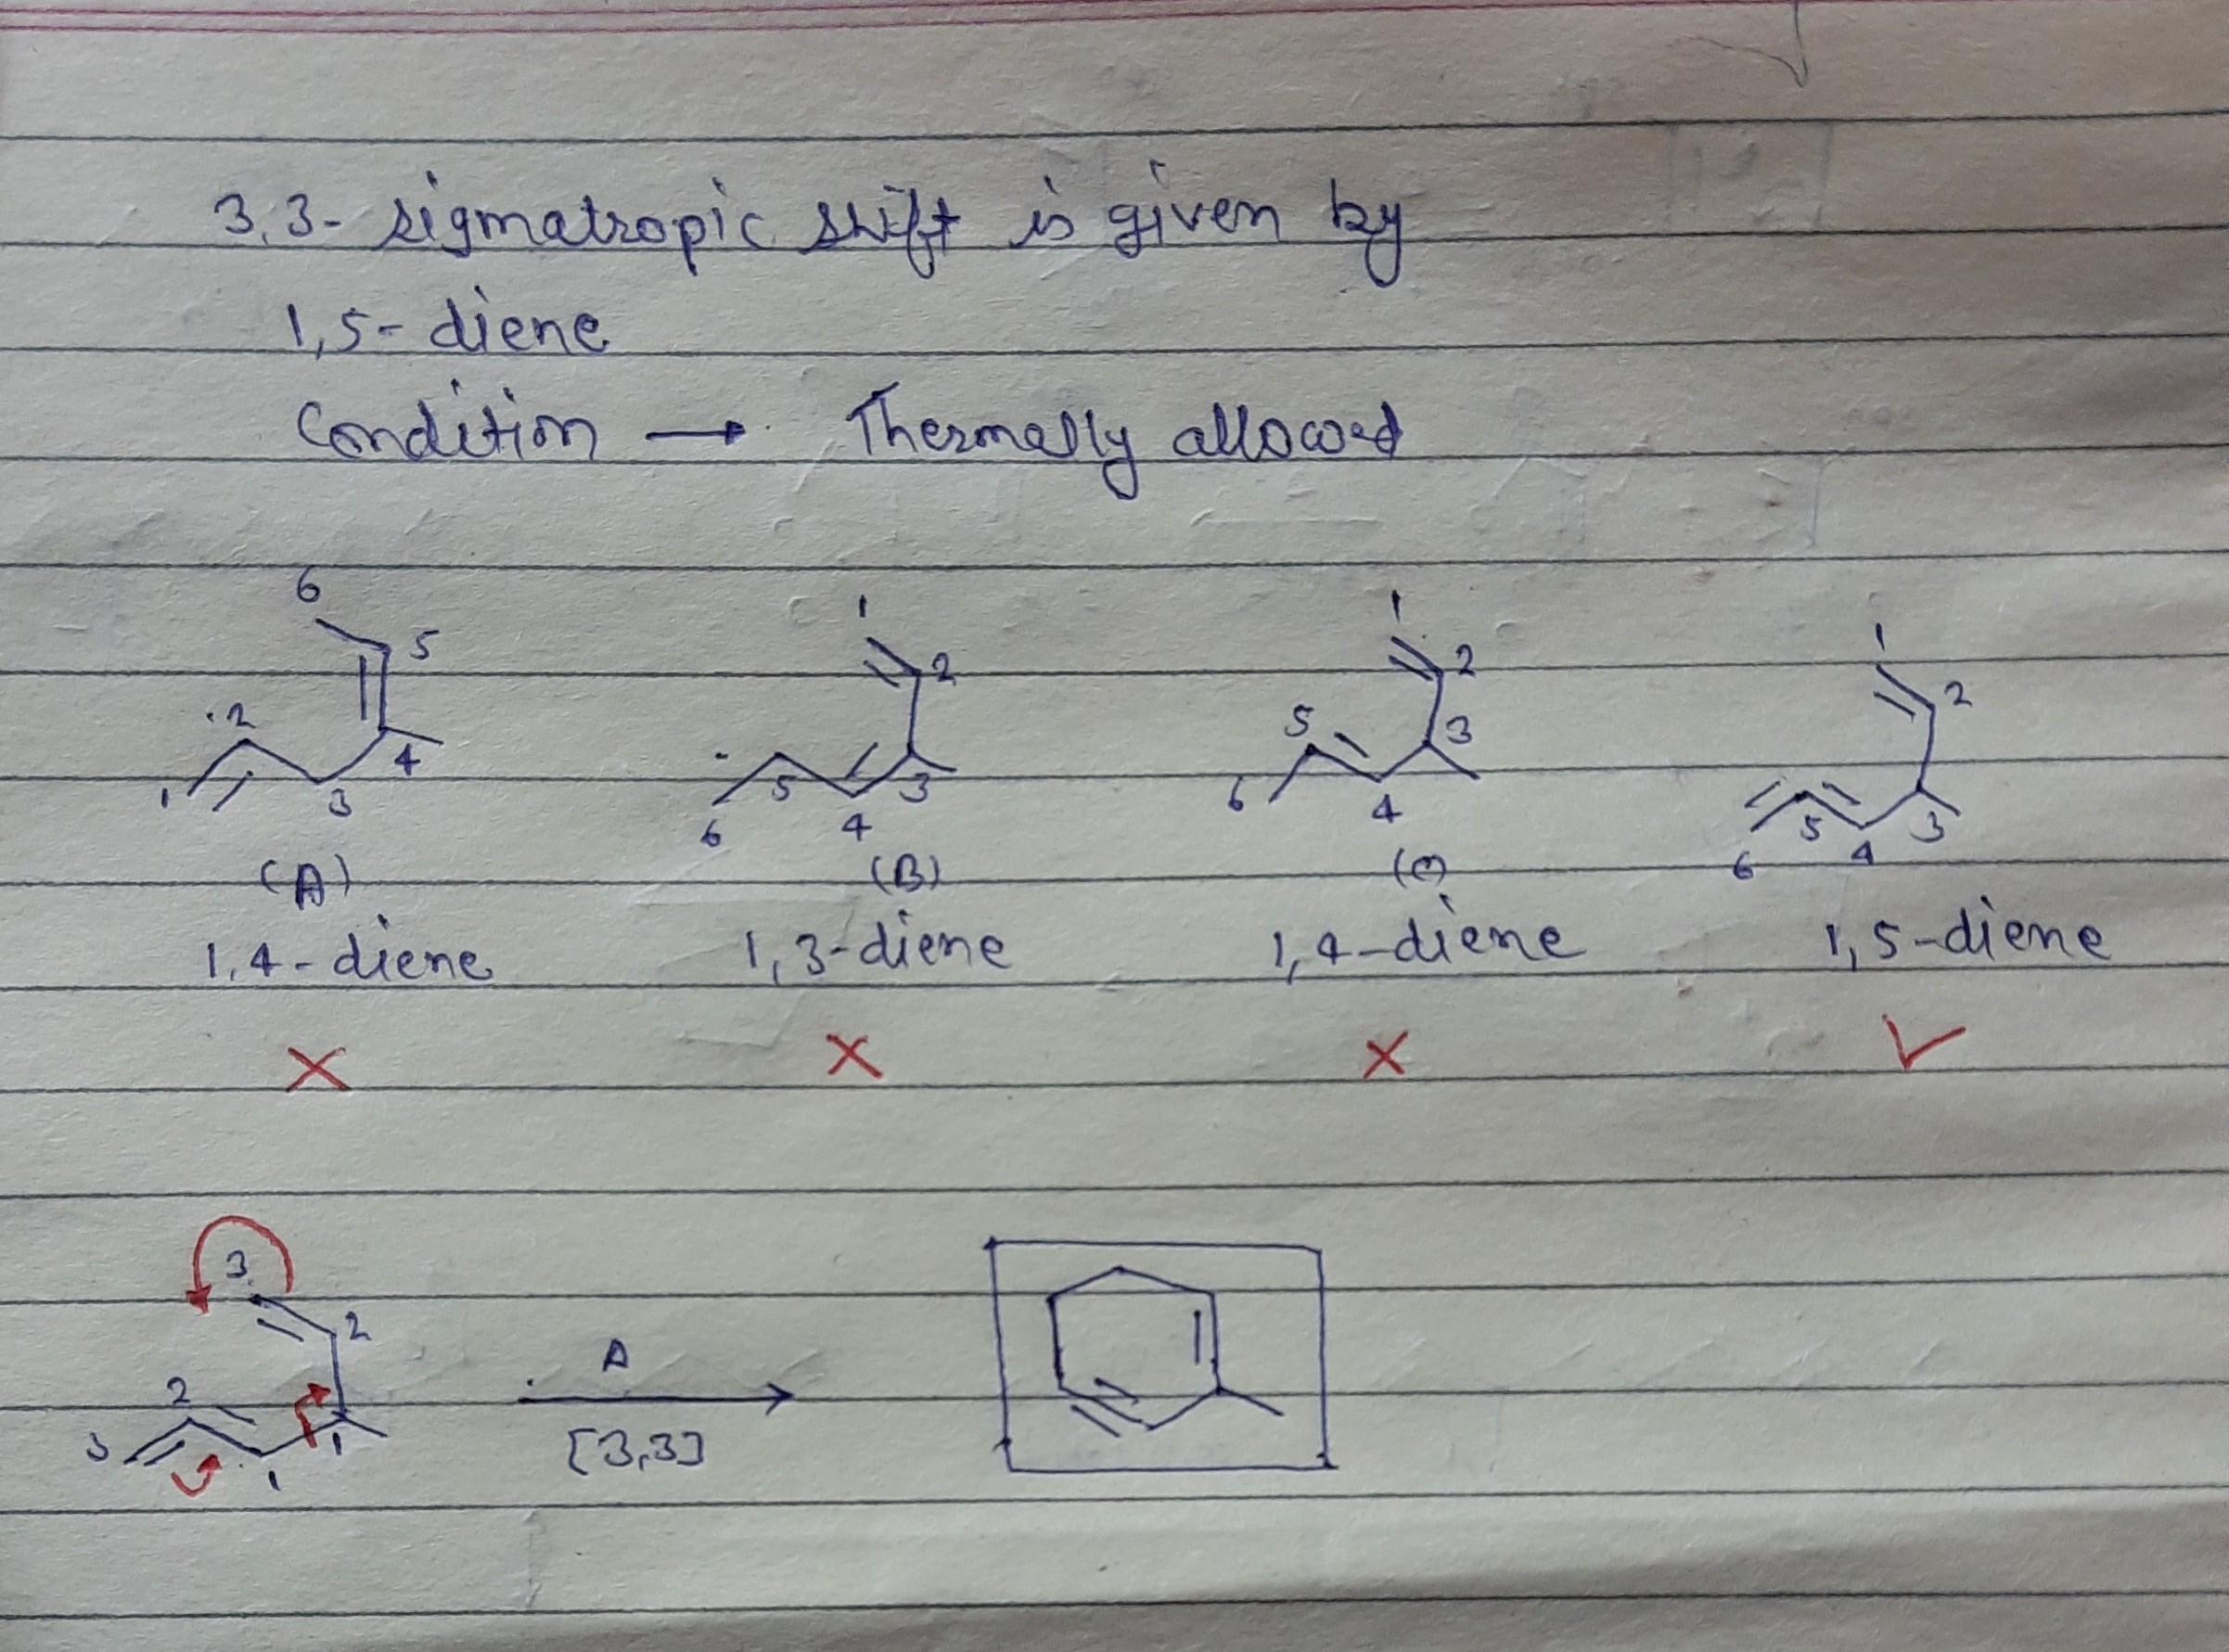 3,3- sigmatropic shift is given by
1,5- diene
Condition → Thermally allowed
6
5
2
4
1
3
1
2
5
3
6
4
1
2
5
3
6
4
1
2
5
3
6
4
(A)
(B)
(C)
1,4-diene
1,3-diene
1,4-diene
1,5-diene
3
2
2
3
1
1
Δ
[3,3]